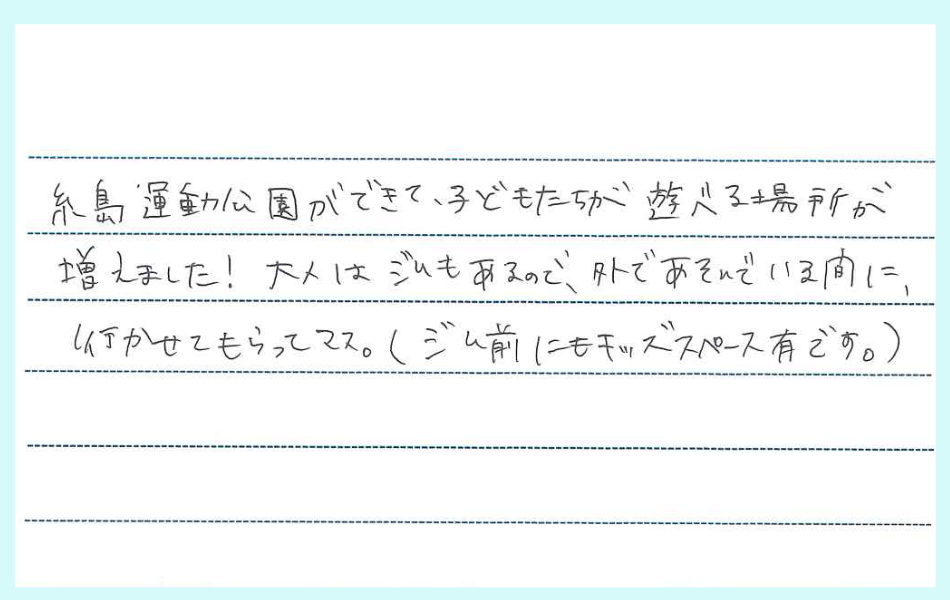 糸島運動公園ができて、子どもたちが遊べる場所が
増えました！大人はジムもあるので、外であそんでいる間に、
行かせてもらってマス。(ジム前にもキッズスペース有です。)